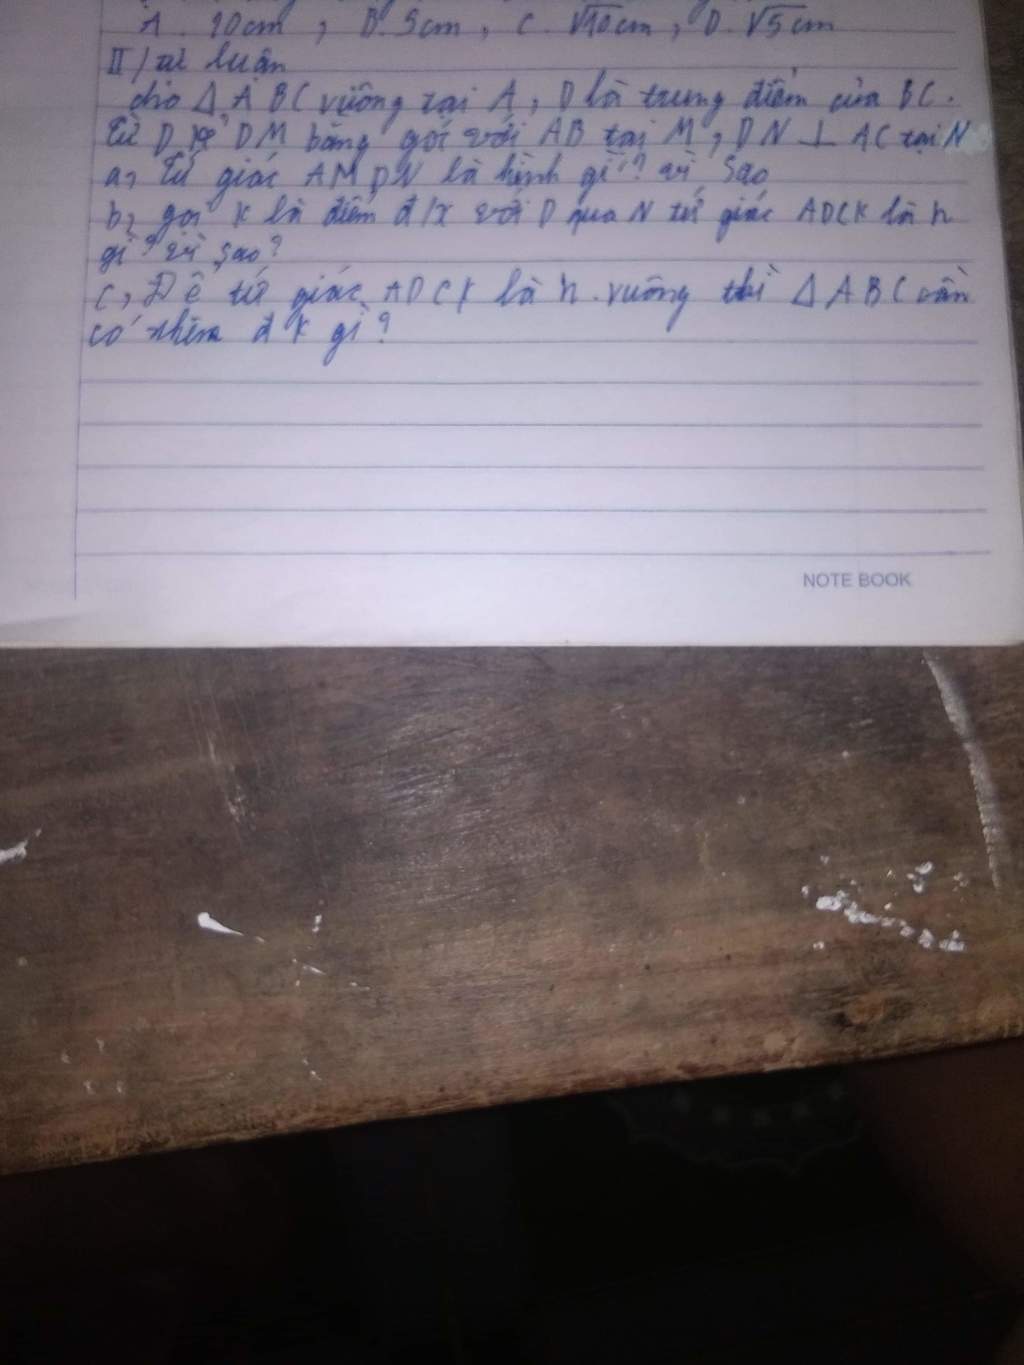 A. 10cm, B. 5cm, C. √10cm, D. √5cm
II/ tự luận
cho Δ ABC vuông tại A, D là trung điểm của BC.
Từ D kẻ DM bằng góc với AB tại M, DN ⊥ AC tại N
a, Tứ giác AMDN là hình gì? vì sao
b, gọi K là điểm đ/x với D qua N tứ giác ADCK là h
gì? vì sao?
c, Để tứ giác ADCK là h. vuông thì Δ ABC cần
có thêm đk gì?
NOTE BOOK